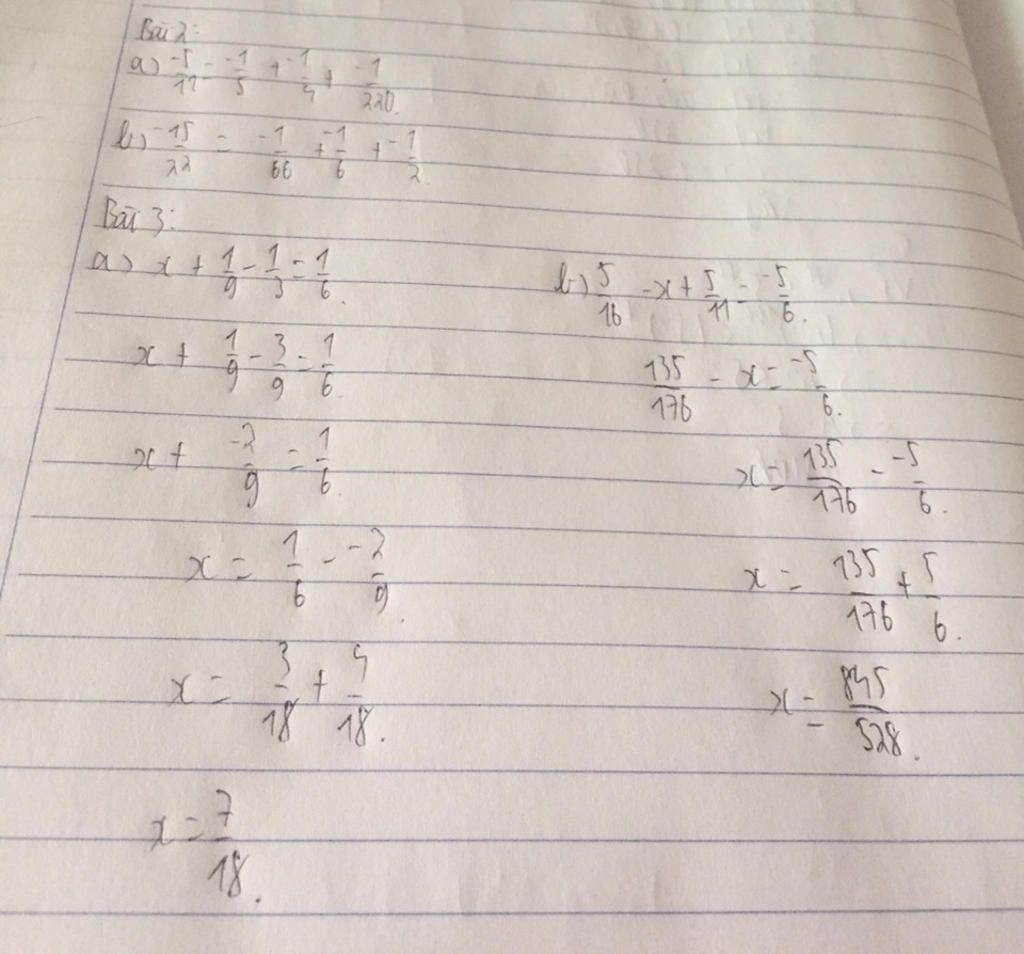 Bài 2:
a) -5/11 = -1/5 + -1/4 + -1/220.
b) -15/22 = -1/66 + -1/6 + -1/2.
Bài 3:
a) x + 1/9 - 1/3 = 1/6.
x + 1/9 - 3/9 = 1/6.
x + -2/9 = 1/6.
x = 1/6 - -2/9.
x = 3/18 + 4/18.
x = 7/18.
b) 5/16 - x + 5/11 = -5/6.
135/176 - x = -5/6.
x = 135/176 - -5/6.
x = 135/176 + 5/6.
x = 845/528.